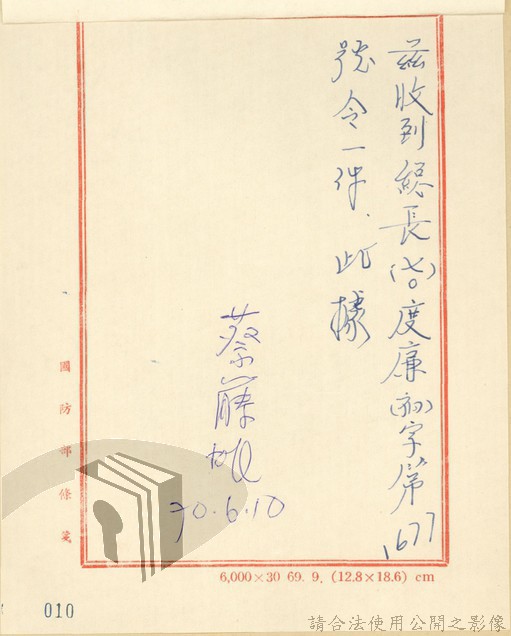 茲收到總長(七○)度廉(初)字第1677
號令一件、此據
蔡
70.6.10
國防部條箋
6,000×30 69. 9. (12.8×18.6) cm
010
請合法使用公開之影像